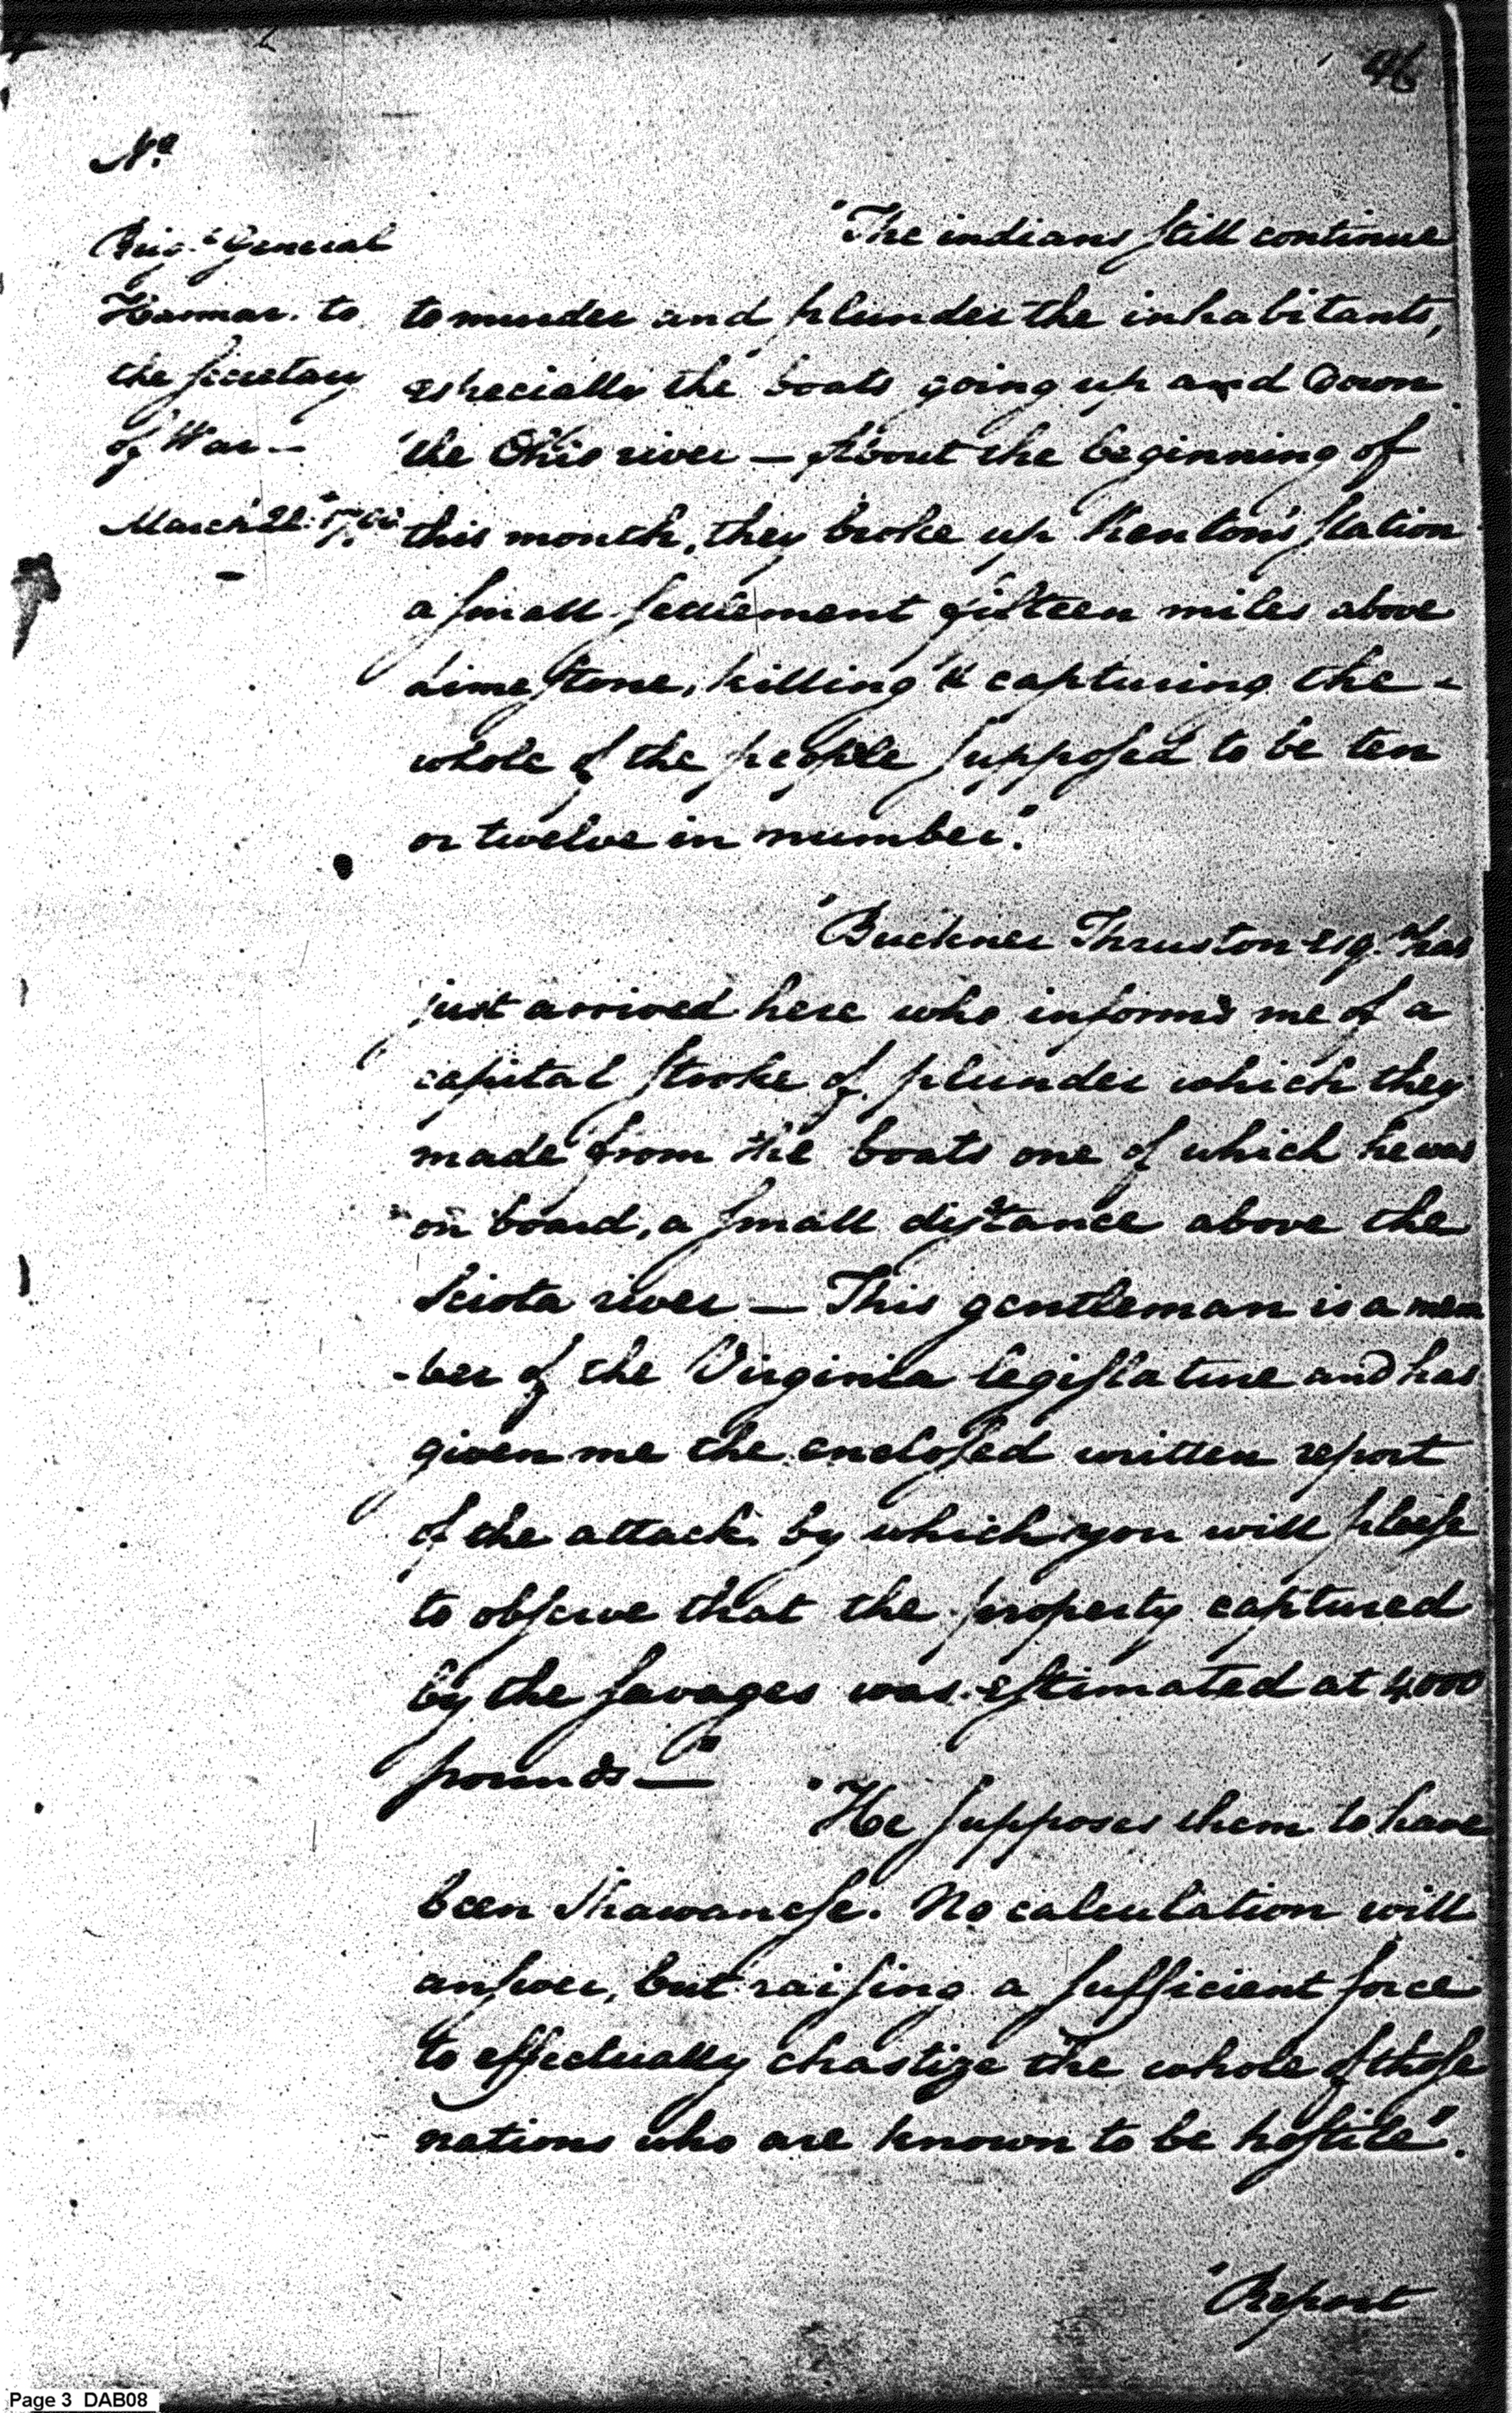 46
No.
Brigr General
Harmar. to
the Secretary
of War —
March 24th 1790
"The indians still continue
to murder and plunder the inhabitants,
especially the boats going up and down
the Ohio river — About the beginning of
this month, they broke up Kenton's station
a small settlement fifteen miles above
Limestone, killing & capturing the -
whole of the people supposed to be ten
or twelve in number".
"Buckner Thruston esqr. has
just arrived here who informs me of a
capital stroke of plunder which they
made from the boats one of which he was
on board, a small distance above the
Sciota river — This gentleman is a mem
-ber of the Virginia legislature and has
given me the enclosed written report
of the attack by which you will please
to observe that the property captured
by the savages was estimated at 4000
pounds —"
"He supposes them to have
been Shawanese. No calculation will
answer, but raising a sufficient force
to effectually chastize the whole of those
nations who are known to be hostile".
"Report
Page 3 DAB08